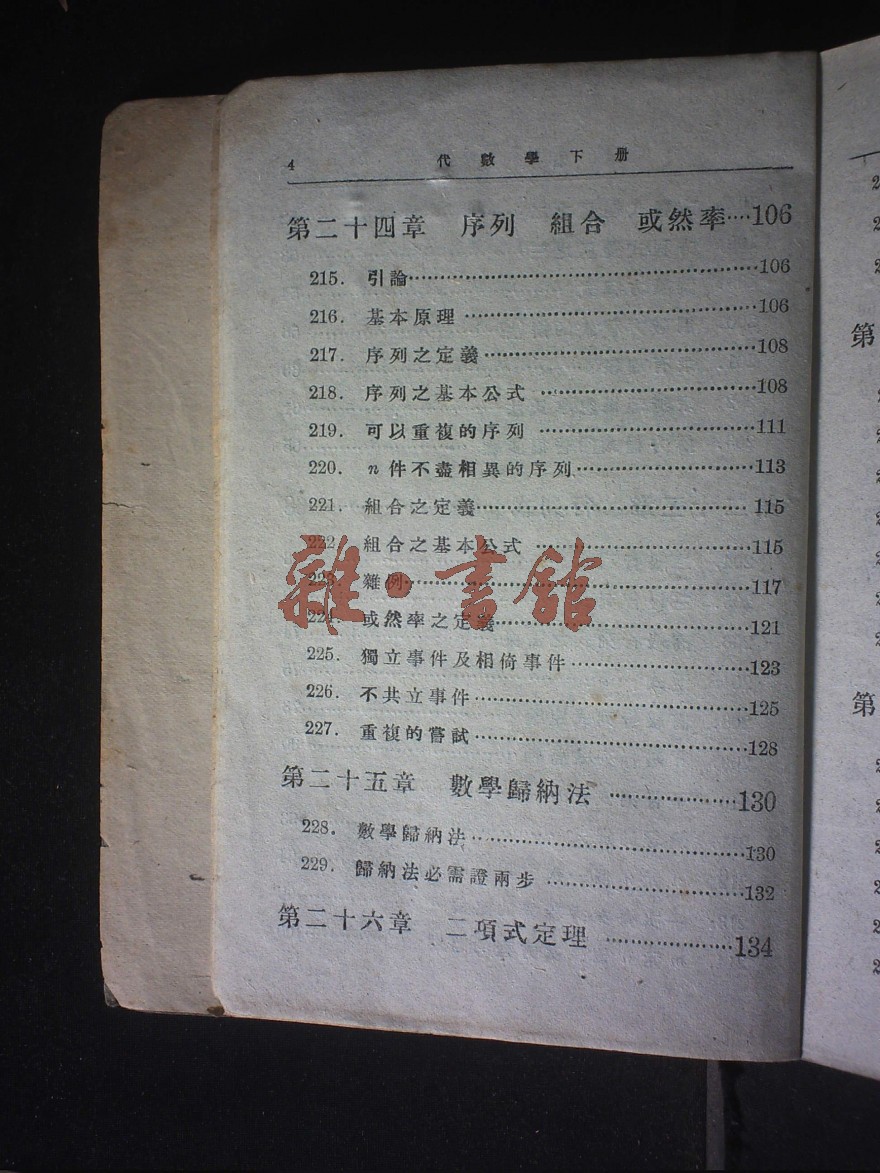 4 代數學下册
第二十四章 序列 組合 或然率····106
215. 引論····106
216. 基本原理····106
217. 序列之定義····108
218. 序列之基本公式····108
219. 可以重複的序列 111
220. n件不盡相異的序列····113
221. 組合之定義····115
222. 組合之基本公式····115
223. 雜例····117
224. 或然率之定義····121
225. 獨立事件及相倚事件····123
226. 不共立事件····125
227. 重複的嘗試····128
第二十五章 數學歸納法····130
228. 數學歸納法····130
229. 歸納法必需證兩步····132
第二十六章 二項式定理····134
雜·書館
第
第